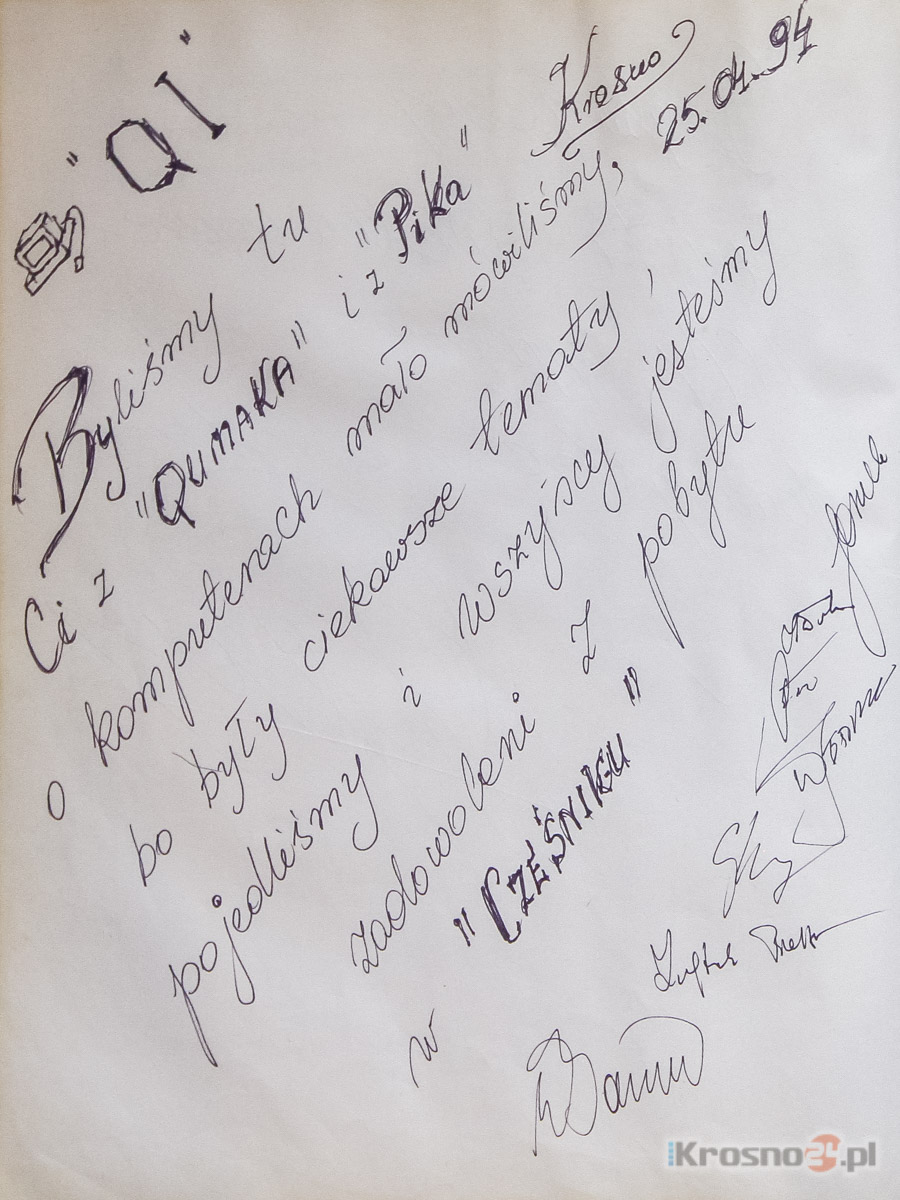 "QI"
Krosno 25.04.94
Byliśmy tu
Ci z "QUMAKA" i z "Pika"
o komputerach mało mówiliśmy,
bo były ciekawsze tematy,
pojedliśmy i wszyscy jesteśmy
zadowoleni z pobytu
w "CZEŚNIKU"
iKrosno24.pl